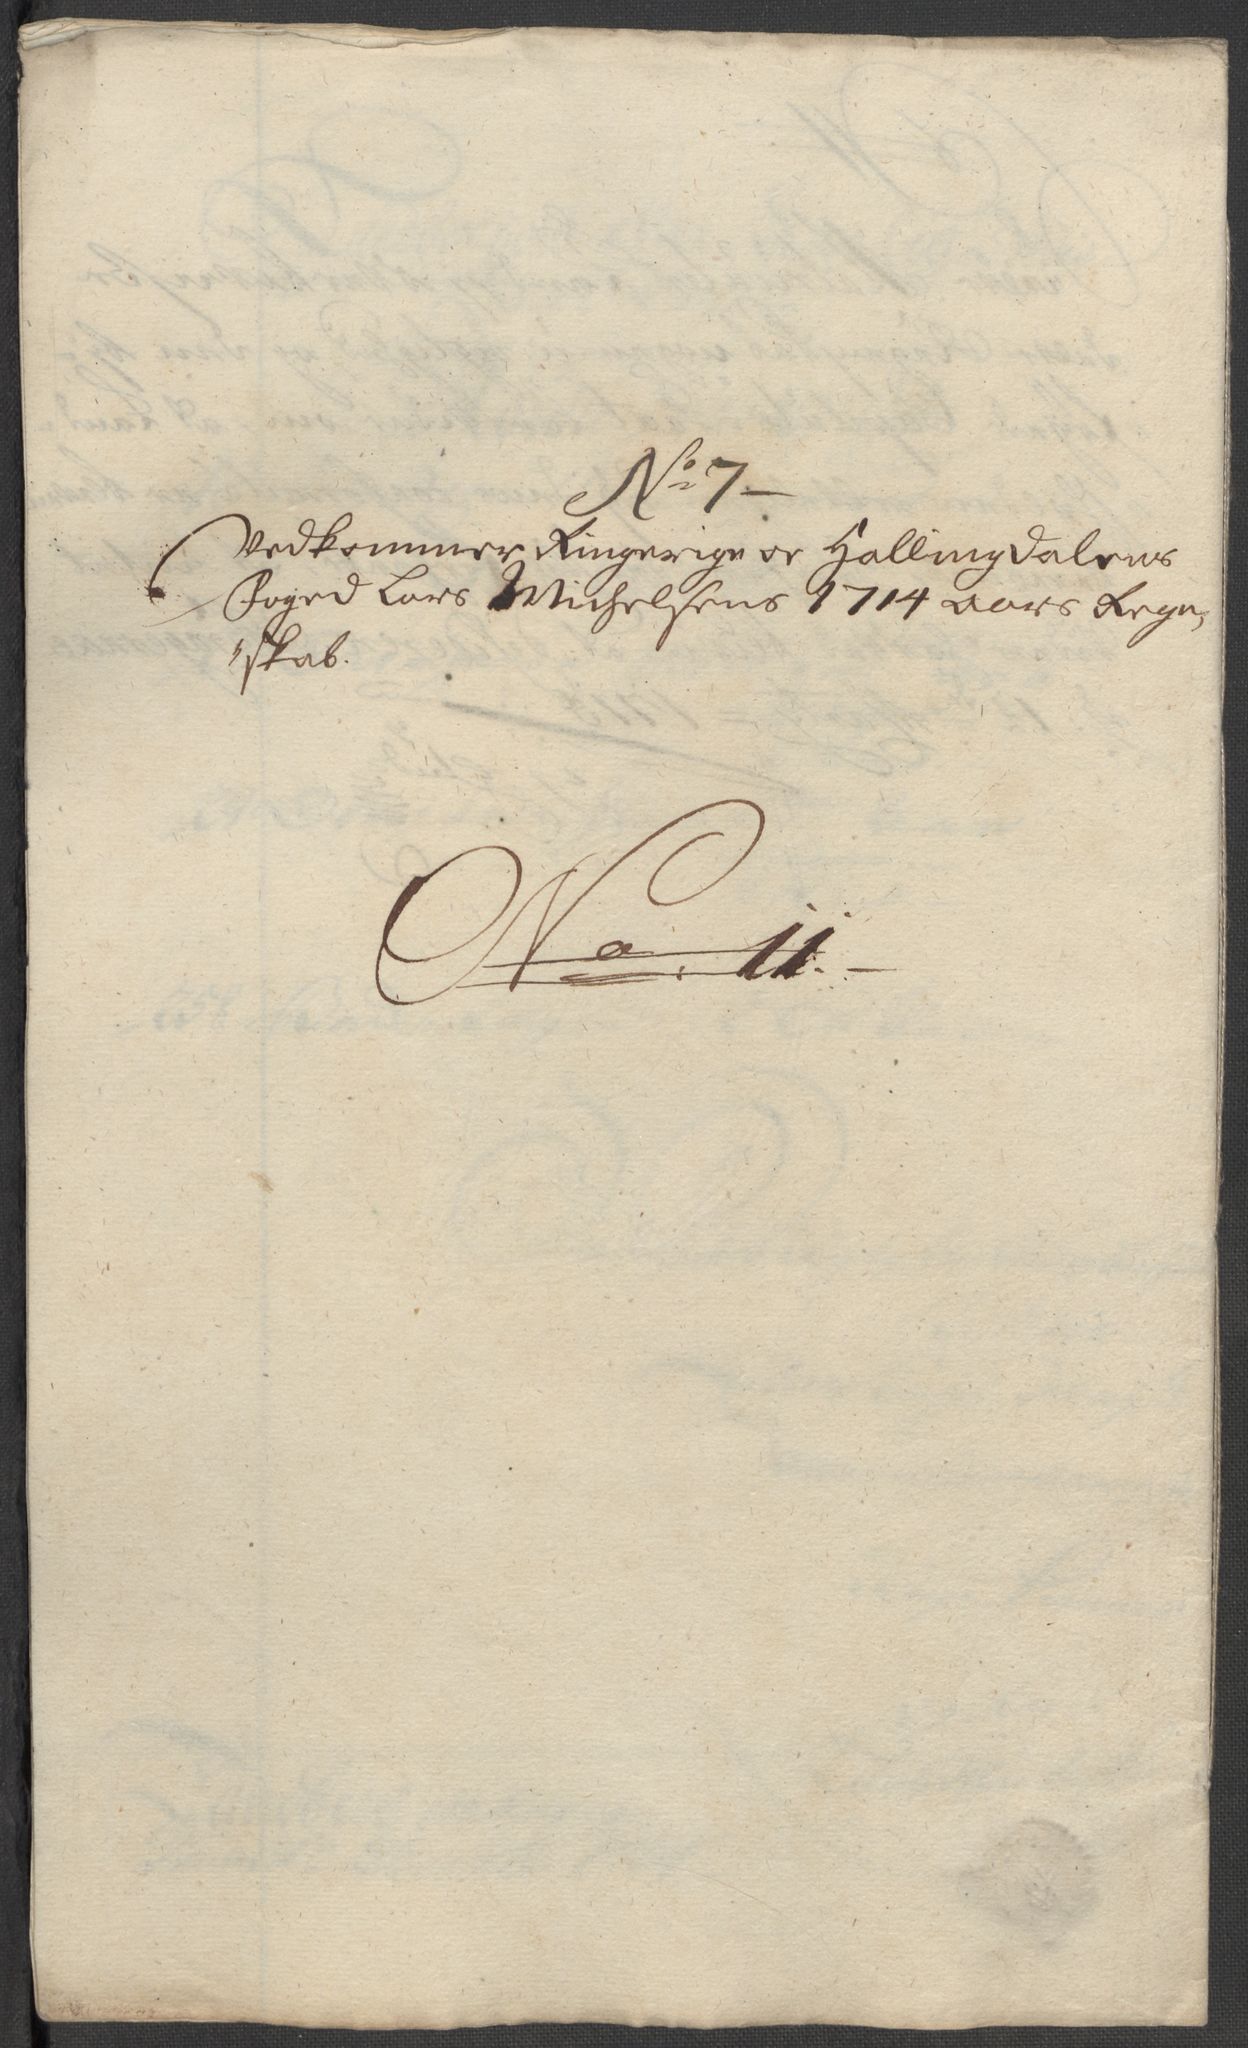 No 7
Vedkommer Ringerige oc Hallingdalens
Foged Lars Michelsens 1714 aars Regn-
skab.
No. 11.